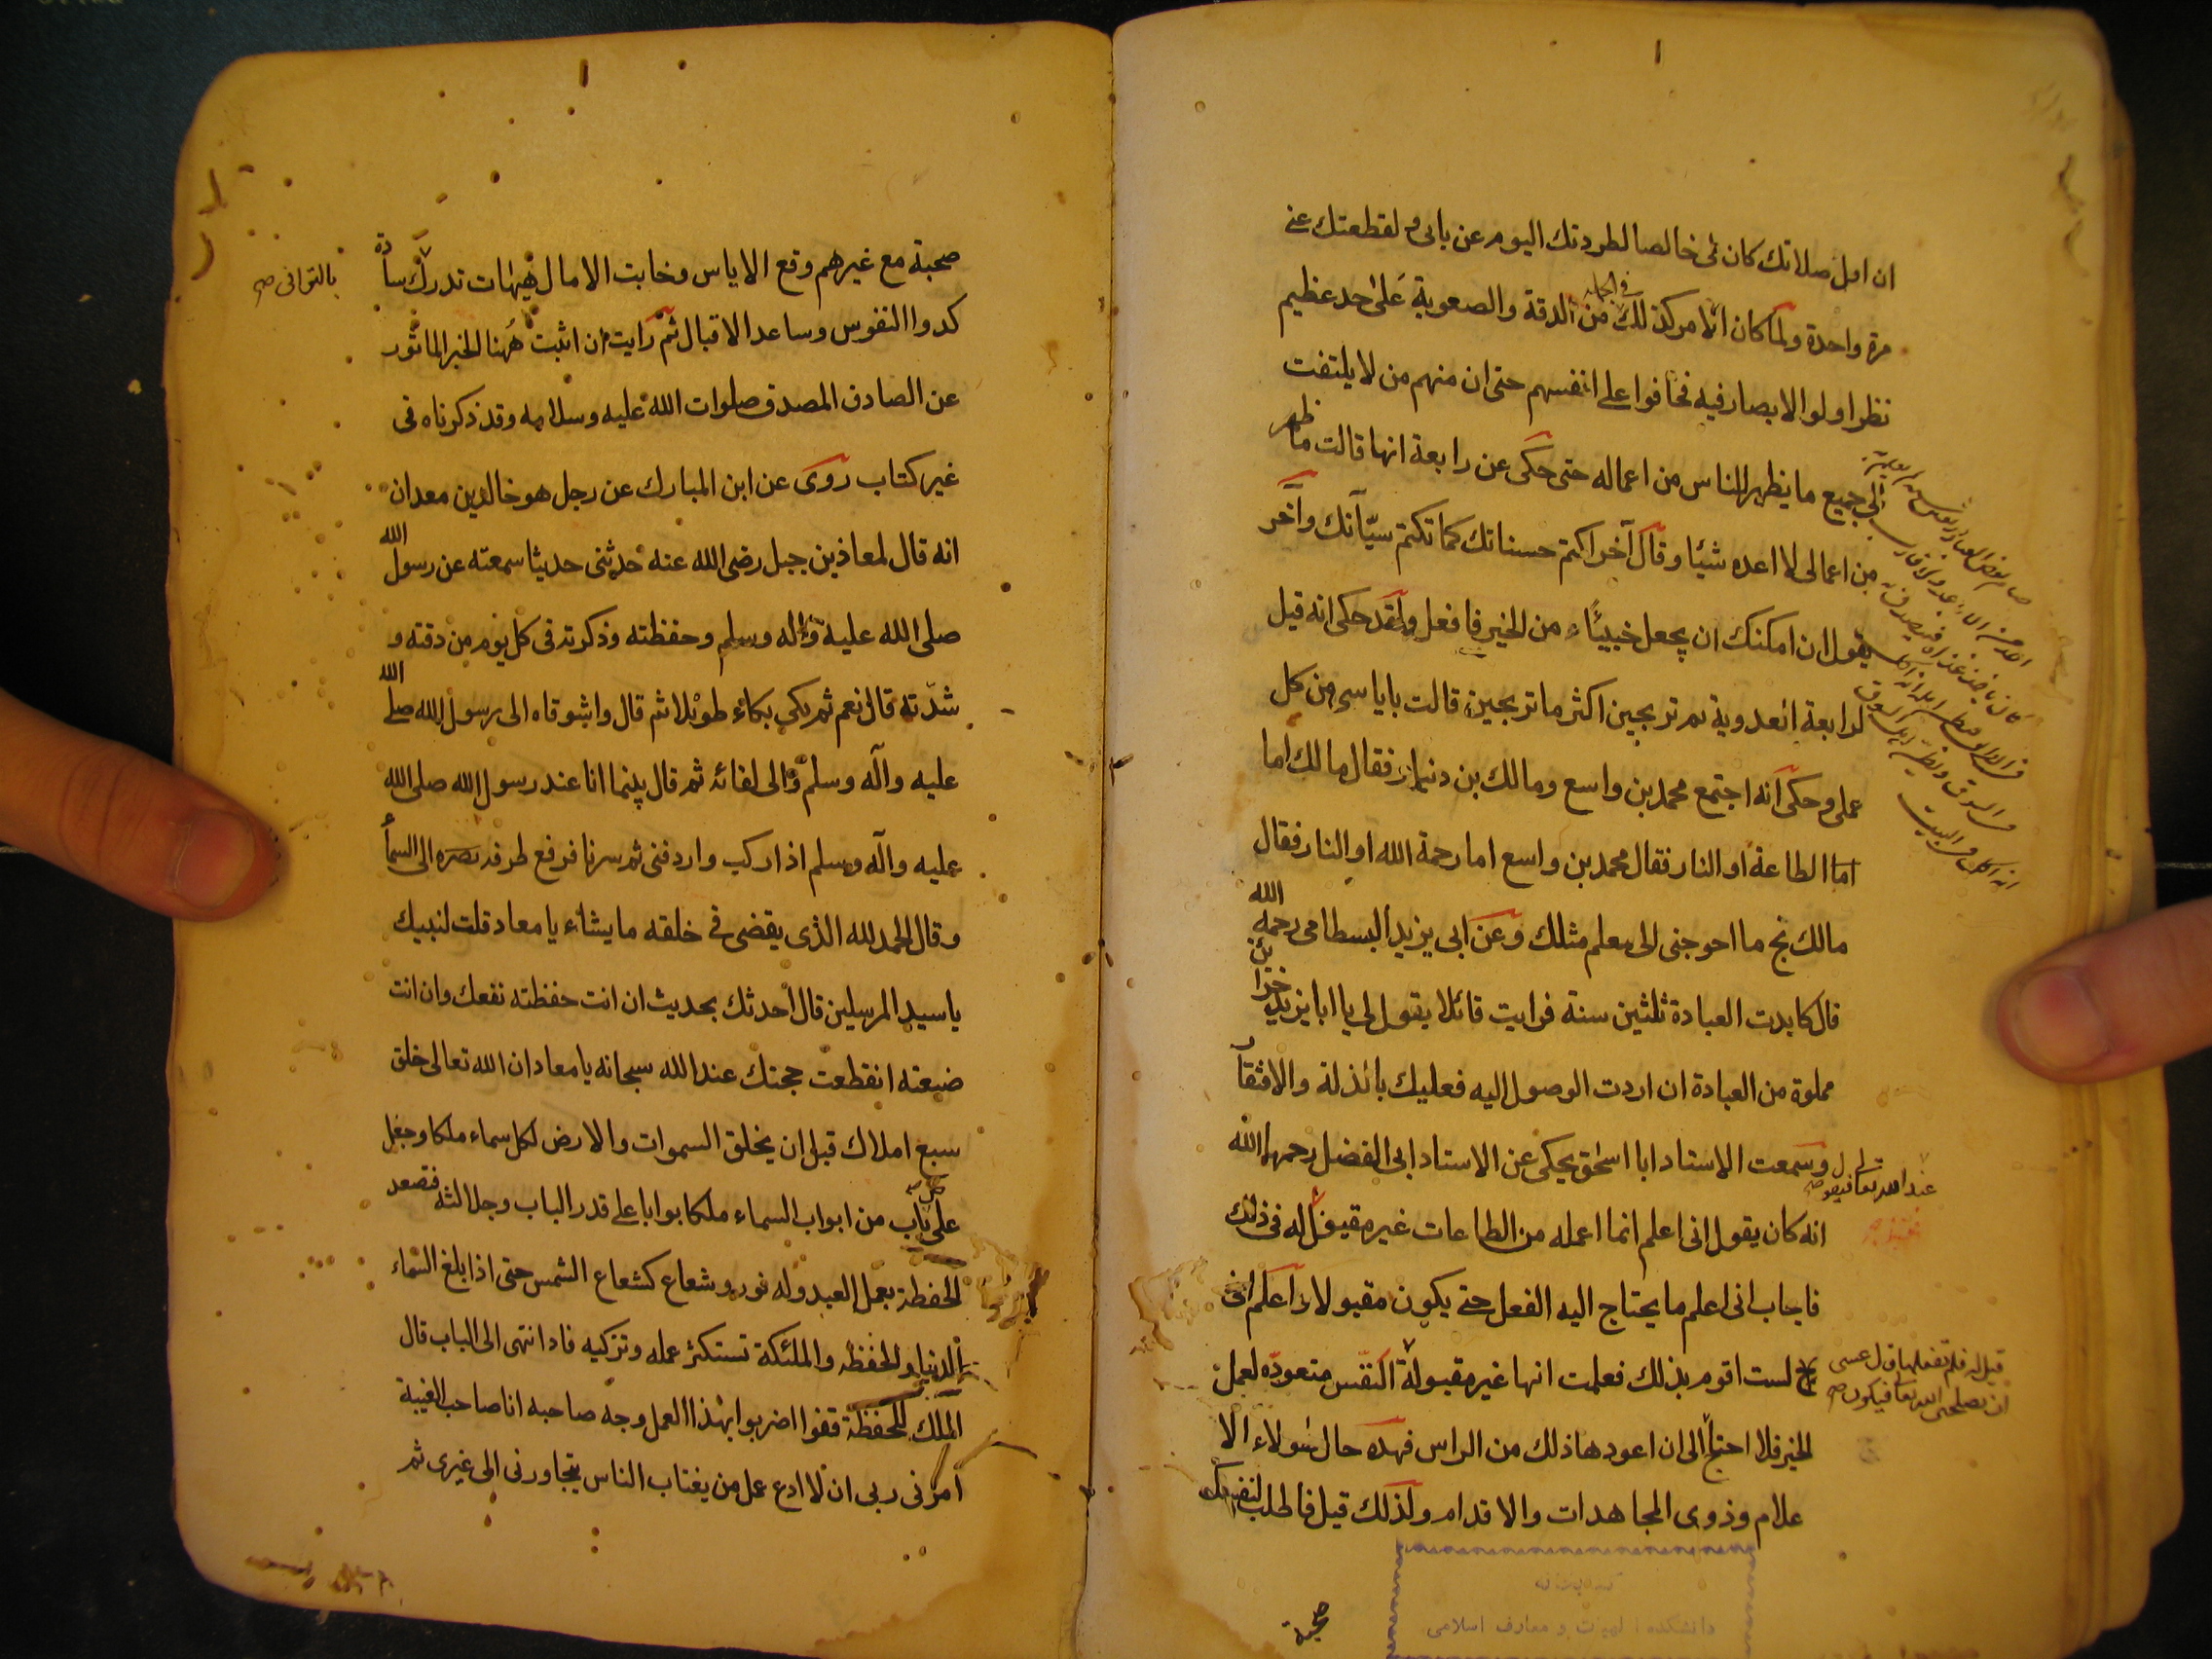 ان اول صلاتك كان لى خالصا لطردتك اليوم عن بابى ولقطعتك عنى
مرة واحدة ولما كان الامر كذلك فى الجملة من الدقة والصعوبة على احد عظيم
نظر اولو الابصار فيه فخافوا على انفسهم حتى ان منهم من لا يلتفت
الى جميع ما يظهر للناس من اعماله حتى حكى عن رابعة انها قالت ما ظهر
من اعمالى لا اعده شيئا وقال آخر اكتم حسناتك كما تكتم سيّآتك وآخر
يقول ان امكنك ان يجعل خبيئًا من الخير فافعل ولقد حكى انه قيل
لرابعة العدوية بم ترتجين اكثر ما ترتجين قالت باياسى من كل
عملى وحكى انه اجتمع محمد بن واسع ومالك بن دينار فقال مالك اما
اما الطاعة او النار فقال محمد بن واسع اما رحمة الله او النار فقال
مالك نح ما احوجنى الى معلم مثلك وعن ابى يزيد البسطامى رحمه الله
قال كابدت العبادة ثلثين سنة فرايت قائلا يقول لى يا ابا يزيد خزائن
مملوة من العبادة ان اردت الوصول اليه فعليك بالذلة والافتقا
وسمعت الاستاد ابا اسحق يحكى عن الاستاد ابى الفضل رحمهما الله
انه كان يقول انى اعلم انما اعمله من الطاعات غير مقبول له فى ذلك
فاجاب انى اعلم ما يحتاج اليه الفعل حتى يكون مقبولا واعلم انى
لست اقوم بذلك فعلمت انها غير مقبولة النفس متعودّه لعمل
الخير فلا احتاج الى ان اعودها ذلك من الراس فهذه حال هولاء الا
علام وذوى المجاهدات والاقدام ولذلك قيل فاطلب لنفسك
صحبة
عند الله تعا
قيل له فلم تفعلها قال عسى
ان يصلحنى الله تعا فيكون
انه اكل فى البيت
دانشكده الهيات و معارف اسلامى
صحبة مع غيرهم وقع الاياس وخابت الامال هيهات تدرك سادة
كدوا النفوس وساعد الاقبال ثم رايت ان اثبت ههنا الخبر الماثور
عن الصادق المصدق صلوات الله عليه وسلامه وقد ذكرناه فى
غير كتاب روى عن ابن المبارك عن رجل هو خالد بن معدان
انه قال لمعاذ بن جبل رضى الله عنه حدثنى حديثا سمعته عن رسول الله
صلى الله عليه وآله وسلم وحفظته وذكرته فى كل يوم من دقته و
شدّته قال نعم ثم بكى بكاء طويلا ثم قال واشوقاه الى رسول الله صلى الله
عليه وآله وسلم والى لقائه ثم قال بينما انا عند رسول الله صلى الله
عليه وآله وسلم اذ اركب واردفنى ثم سرنا فرفع طرفه بصره الى السمأ
وقال الحمد لله الذى يقضى فى خلقه ما يشاء يا معاد قلت لبيك
يا سيد المرسلين قال احدثك بحديث ان انت حفظته نفعك وان انت
ضيعته انقطعت حجتك عند الله سبحانه يا معاد ان الله تعالى خلق
سبع املاك قبل ان يخلق السموات والارض لكل سماء ملكا وجعل
على كل باب من ابواب السماء ملكا بوابا على قدر الباب وجلالته فتصعد
الحفظة بعمل العبد وله نور وشعاع كشعاع الشمس حتى اذا بلغ السماء
الدنيا والحفظه والملئكة تستكثر عمله وتزكيه فاذا انتهى الى الباب قال
الملك للحفظة قفوا اضربوا بهذا العمل وجه صاحبه انا صاحب الغيبة
امرنى ربى ان لا ادع عمل من يغتاب الناس يتجاورنى الى غيرى ثم
بالتوانى صح